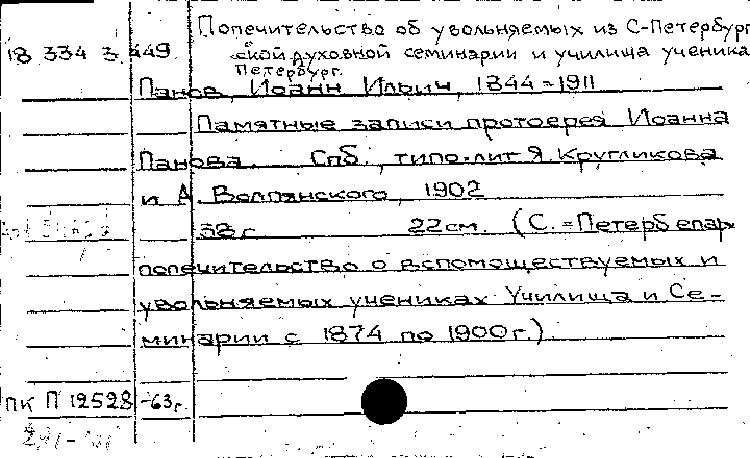 Попечительство об увольняемых из С-Петербург
18 334 3.449 ской духовной семинарии и училища ученика
Петербург.
Панов, Иоанн Ильич, 1844-1911
Памятные записи протоерея Иоанна
Панова. Спб., типо-лит. Я. Кругликова
и А. Волпянского, 1902
38 с 22 см. (С.=Петерб епар
попечительства о вспомоществуемых и
увольняемых учениках Училища и Се-
минарии с 1874 по 1900 г.)
ПК П 12528 -63 г.